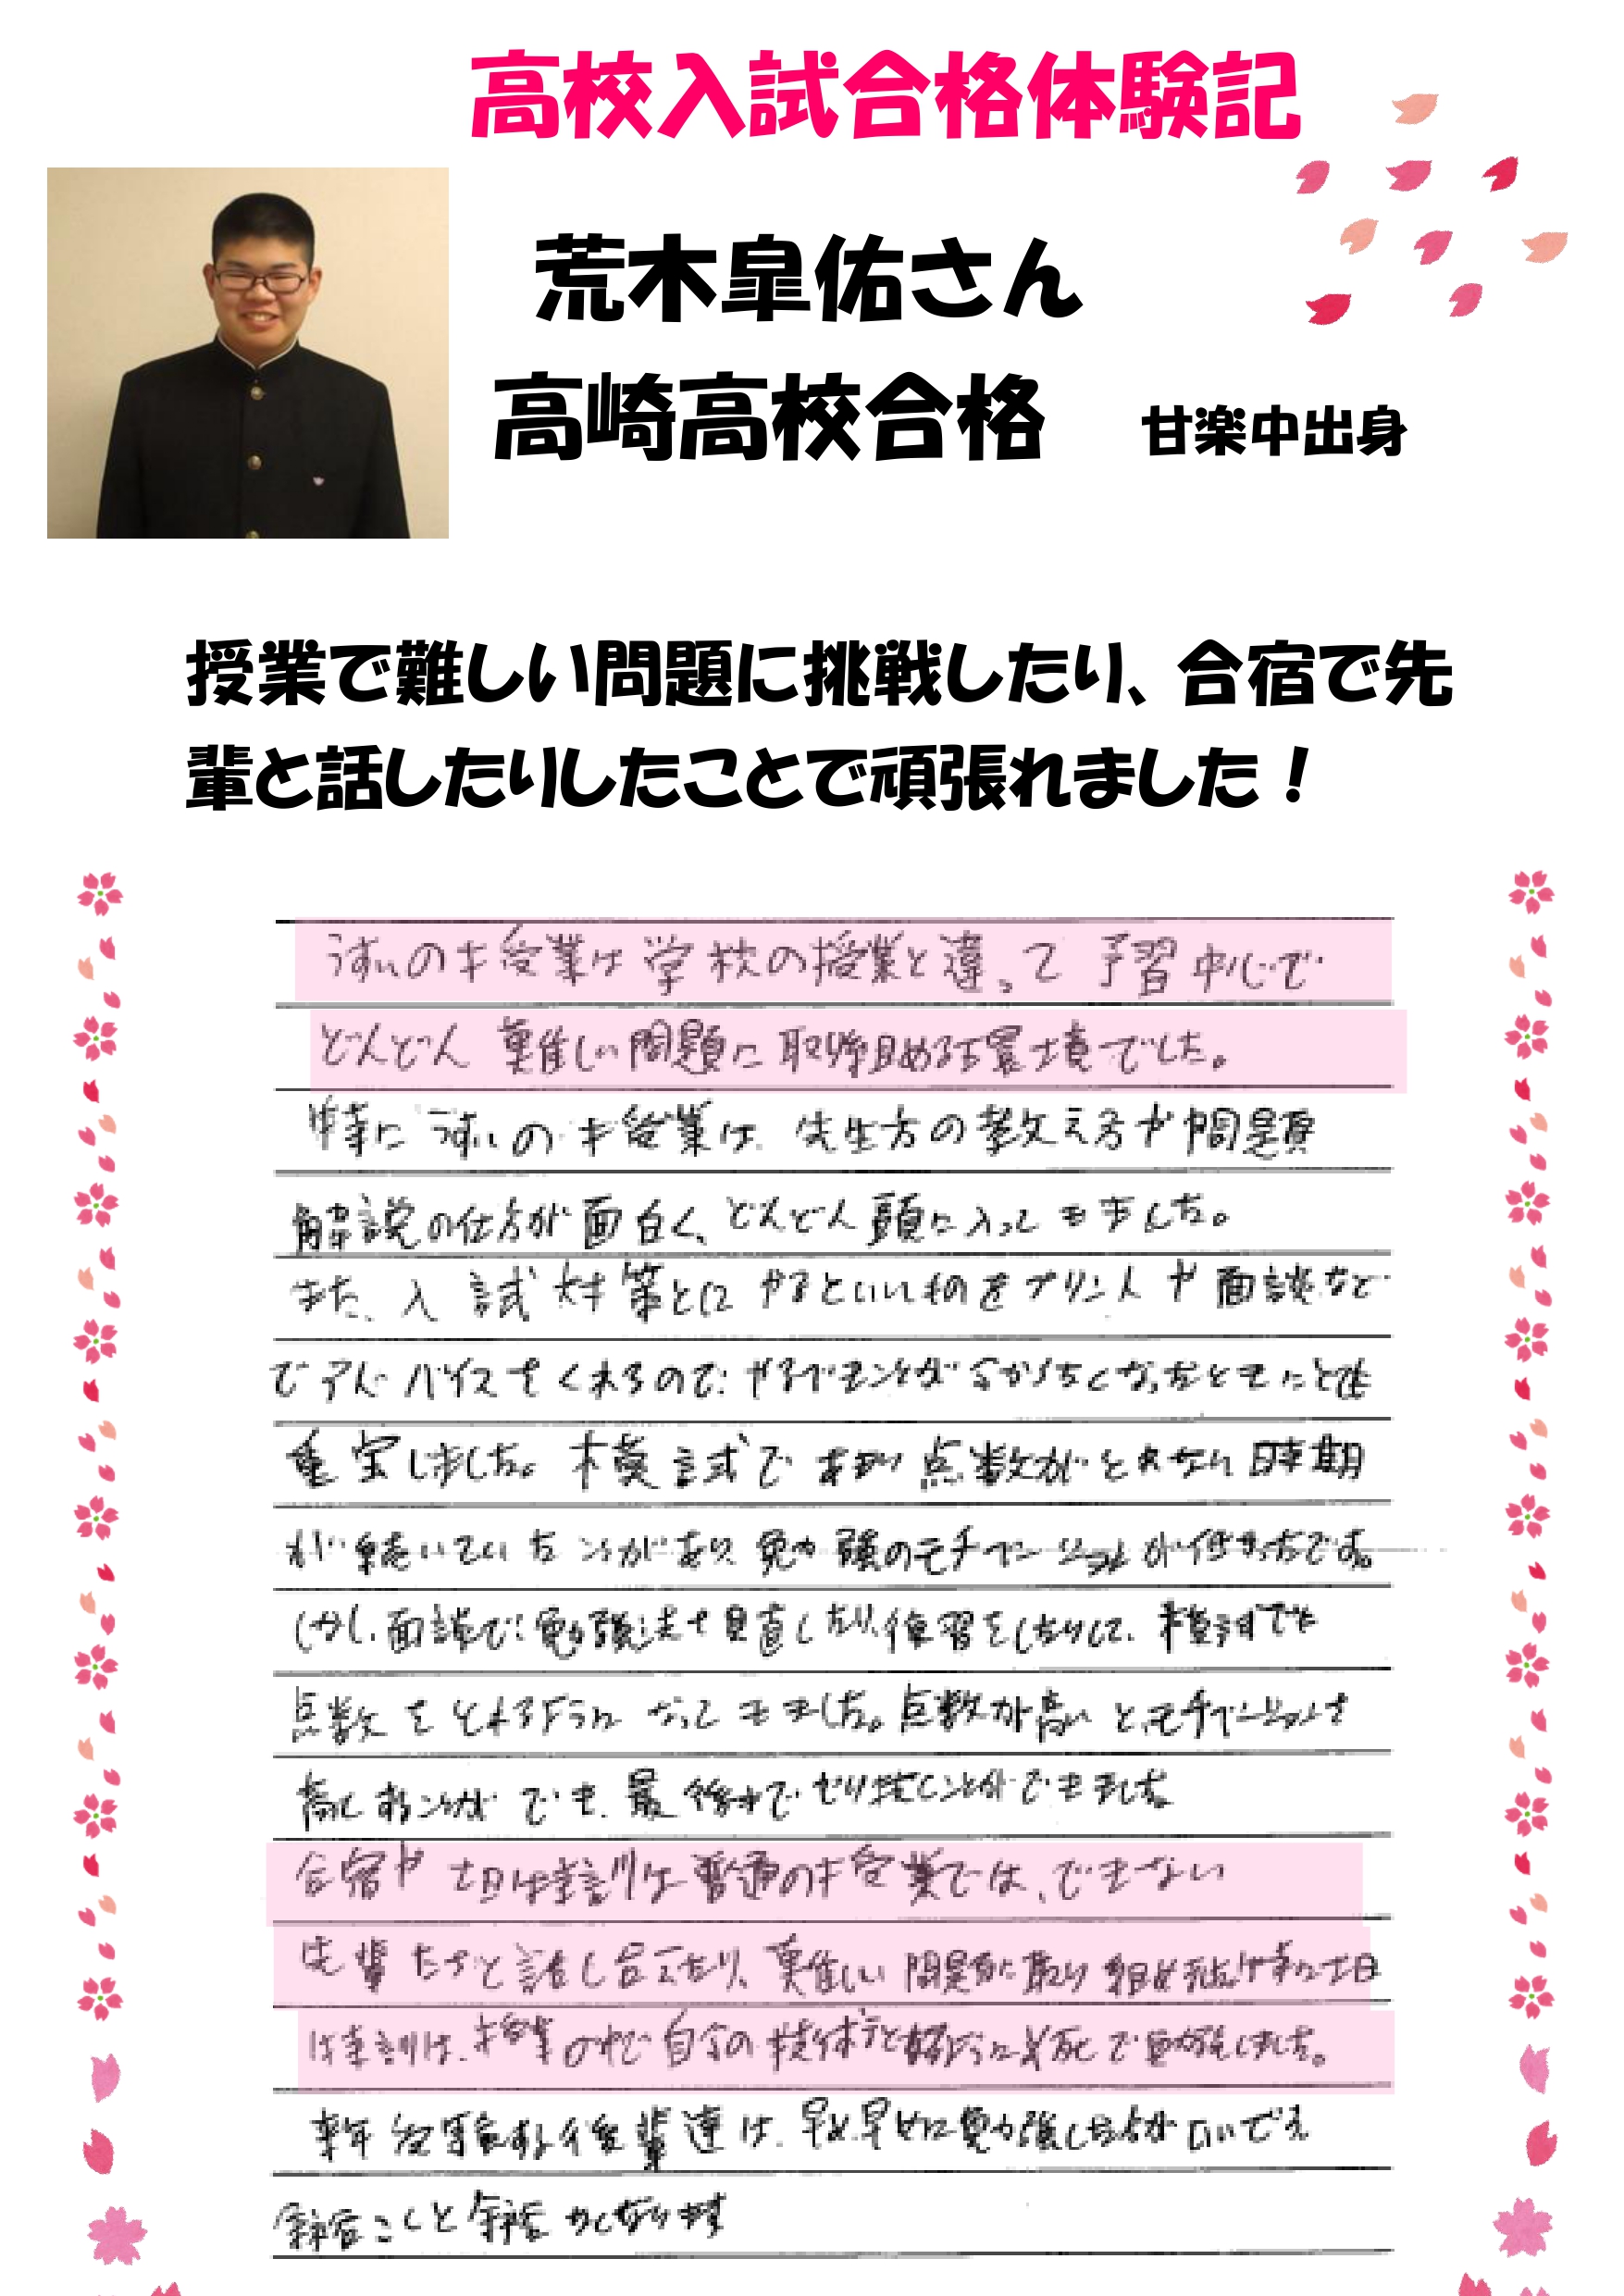 高校入試合格体験記
荒木皐佑さん
高崎高校合格 甘楽中出身
授業で難しい問題に挑戦したり、合宿で先
輩と話したりしたことで頑張れました！
うすいの授業は学校の授業と違って予習中心で
どんどん難しい問題に取り組める環境でした。
特にうすいの授業は先生方の教え方や問題
解説の仕方が面白く、どんどん頭に入ってきました。
また、入試対策とにやるといいものをプリントや面談など
でアドバイスをくれるので、やるべきことが分からなくなったときにとても
重宝しました。模試であまり点数がとれない時期
が続いていたことがあり勉強のモチベーションが低かったです。
しかし、面談で勉強法を見直したり、復習をしたりして、模試でも
点数をとれるようになってきました。点数が高いと、モチベーションを
高くすることができ、最後までやり抜くことができました
合宿や土日特訓は普通の授業では、できない
先輩たちと話し合えたり、難しい問題に取り組めました特に土日
特訓は、授業の中で自分の技術を必死で勉強しました。
来年受験する後輩達は、早め早めに勉強した方がいいです